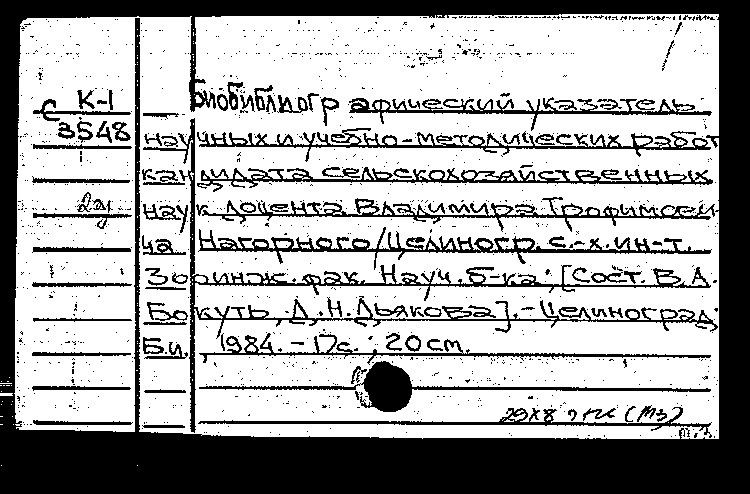 К-1
С
3548
2ау
Биобиблиографический указатель
научных и учебно-методических работ
кандидата сельскохозяйственных
наук доцента Владимира Трофимови-
ча Нагорного / Целиногр. с.-х. ин-т.
Зооинж. фак. Науч. б-ка; [Сост. В.А.
Бокуть, Д.Н. Дьякова]. - Целиноград:
Б.и., 1984. - 17с.; 20 см.
29х8
(МЗ)